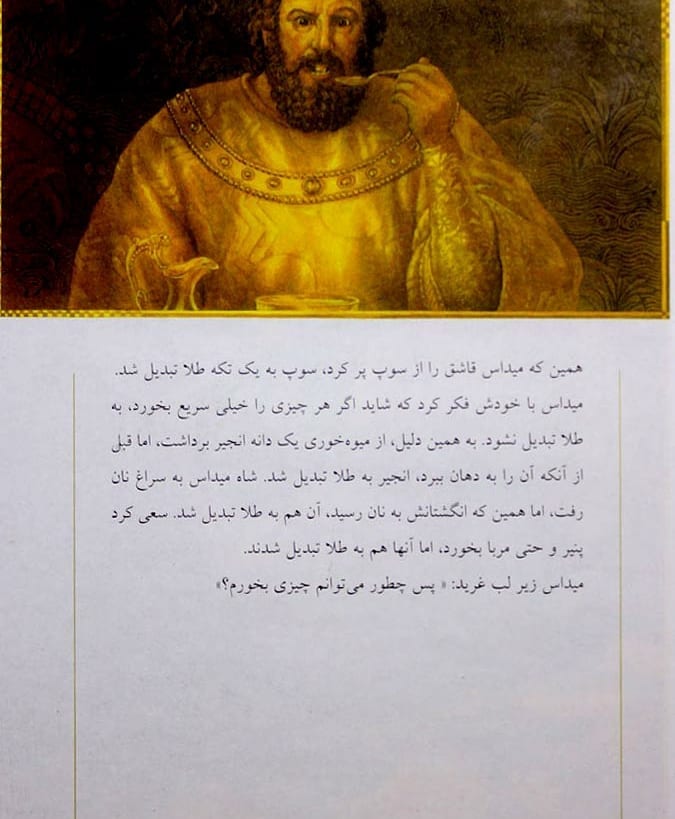 همین که میداس قاشق را از سوپ پر کرد، سوپ به یک تکه طلا تبدیل شد.
میداس با خودش فکر کرد که شاید اگر هر چیزی را خیلی سریع بخورد، به
طلا تبدیل نشود. به همین دلیل، از میوه‌خوری یک دانه انجیر برداشت، اما قبل
از آنکه آن را به دهان ببرد، انجیر به طلا تبدیل شد. شاه میداس به سراغ نان
رفت، اما همین که انگشتانش به نان رسید، آن هم به طلا تبدیل شد. سعی کرد
پنیر و حتی مربا بخورد، اما آنها هم به طلا تبدیل شدند.
میداس زیر لب غرید: « پس چطور می‌توانم چیزی بخورم؟»